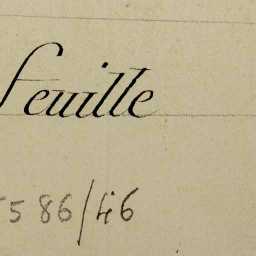 feuille
586/46